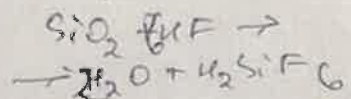 SiO₂ + 6HF →
→ 2H₂O + H₂SiF6